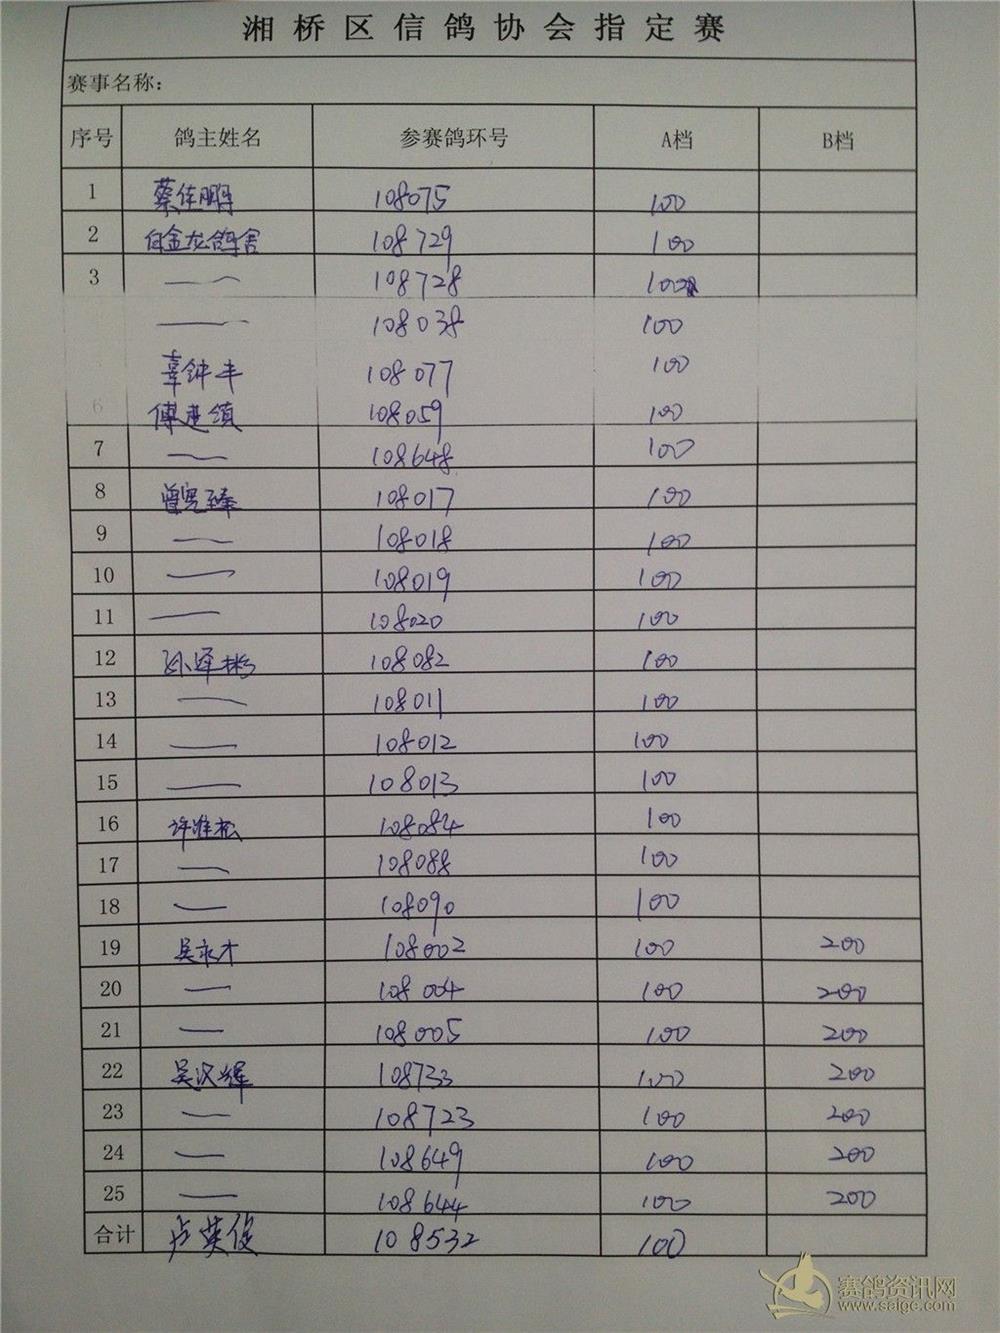 湘桥区信鸽协会指定赛
赛事名称：
序号 鸽主姓名 参赛鸽环号 A档 B档
1 蔡佳鹏 108075 100
2 白金龙鸽舍 108729 100
3 — 108728 100
— 108038 100
辜钟丰 108077 100
6 傅建镇 108059 100
7 — 108648 100
8 曾宪臻 108017 100
9 — 108018 100
10 — 108019 100
11 — 108020 100
12 孙泽彬 108082 100
13 — 108011 100
14 — 108012 100
15 — 108013 100
16 许雅松 108084 100
17 — 108088 100
18 — 108090 100
19 吴永才 108002 100 200
20 — 108004 100 200
21 — 108005 100 200
22 吴汉辉 108733 100 200
23 — 108723 100 200
24 — 108649 100 200
25 — 108644 100 200
合计 卢英俊 108532 100
赛鸽资讯网
www.saige.com